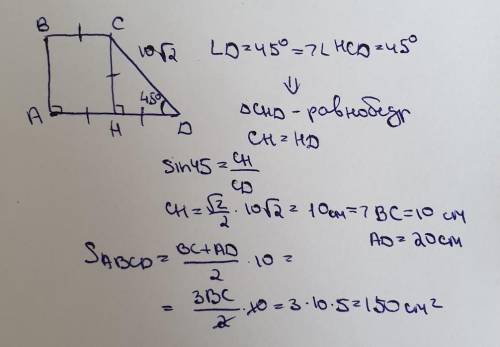 B C
10√2
45°
A H D
∠D=45° => ∠HCD=45°
⇓
△CHD - равнобедр
CH = HD
sin45 = CH/CD
CH = √2/2 · 10√2 = 10см => BC=10 см
AD = 20см
S_ABCD = (BC+AD)/2 · 10 =
= 3BC/2 · 10 = 3·10·5 = 150 см²